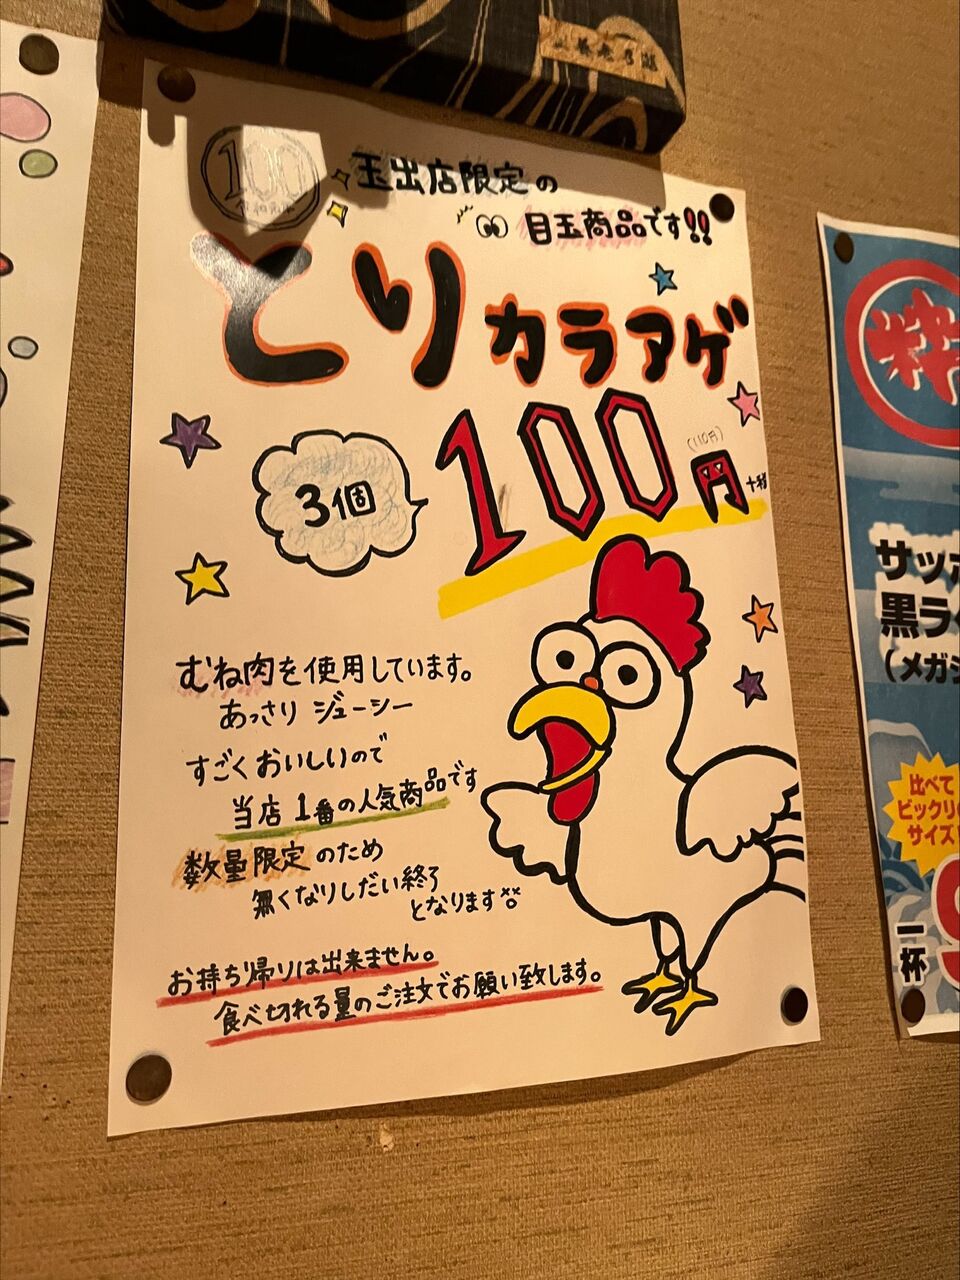 養老乃瀧
100
玉出店限定の
目玉商品です!!
とりカラアゲ
3個
100円
(110円)
+税
むね肉を使用しています。
あっさり ジューシー
すごくおいしいので
当店1番の人気商品です
数量限定のため
無くなりしだい終了
となります
お持ち帰りは出来ません。
食べ切れる量のご注文でお願い致します。
サッポ
黒ラ
(メガジ
比べて
ビックリの
サイズ!
一杯
9